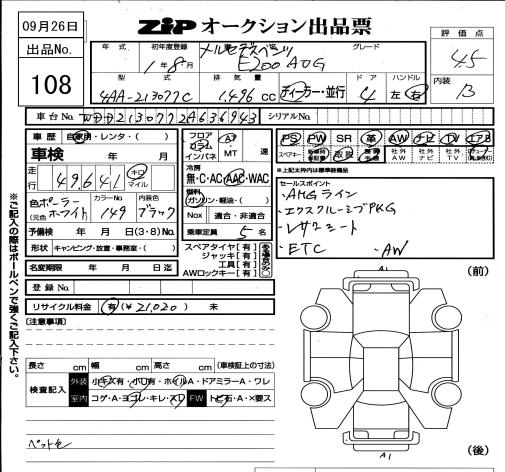 09月26日
ZIP オークション出品票
評価点
4.5
内装
B
出品No.
108
年式 初年度登録 車名 グレード
1年8月 メルセデスベンツ E200 AVG
型式 排気量 ドア ハンドル
4AA-213077C 1,496 CC ディーラー・並行 4 左・右
車台No. WDD2130772A636943 シリアルNo.
車歴 自家用・レンタ・( )
車検 年 月
走行 49,641 キロ マイル
色 ポーラーホワイト (元色) カラーNo. 149 内装色 ブラック
予備検 年 月 日(3・8)No.
形状 キャンピング・放置・事務室・( )
名変期限 年 月 日迄
フロア コラム インパネ AT・MT 速
冷房
無・C・AC・AAC・WAC
燃料
ガソリン・軽油・( )
Nox 適合・非適合
乗車定員 5名
スペアタイヤ[有]
ジャッキ[有]
工具[有]
AWロックキー[有]
PS PW SR 革 AW ナビ TV エアB
スペアキー 取説 社外AW 社外ナビ 社外TV
※上記太枠内は標準装備品
セールスポイント
・AMGライン
・エクスクルーシブPKG
・レザーシート
・ETC ・AW
登録No.
リサイクル料金 有(¥21,020) 未
(注意事項)
長さ cm 幅 cm 高さ cm (車検証上の寸法)
検査記入 外装 小キズ有・小凹有・ホイルA・ドアミラーA・ワレ
室内 コゲ・A・ヨゴレ・キレ・スレ FW トビ石・A・×要ス
※ご記入の際はボールペンで強くご記入下さい。
A1
(前)
A1
(後)